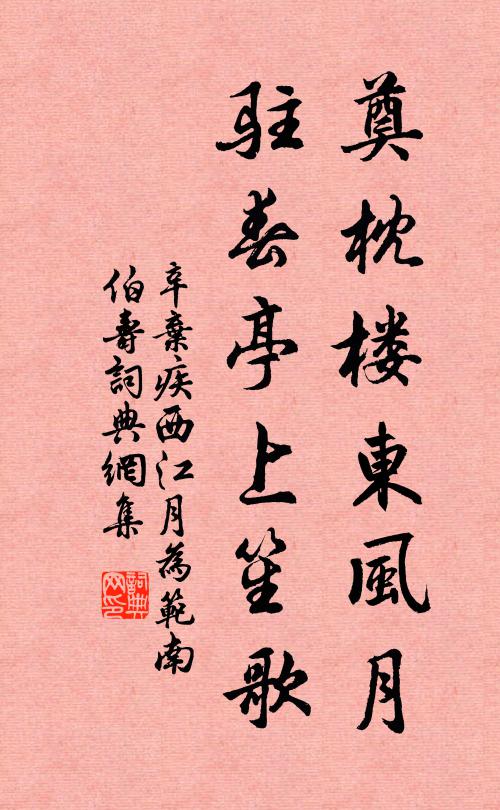 奠枕楼東風月
駐春亭上笙歌
辛棄疾西江月為範南
伯壽詞典網集
詞典网印